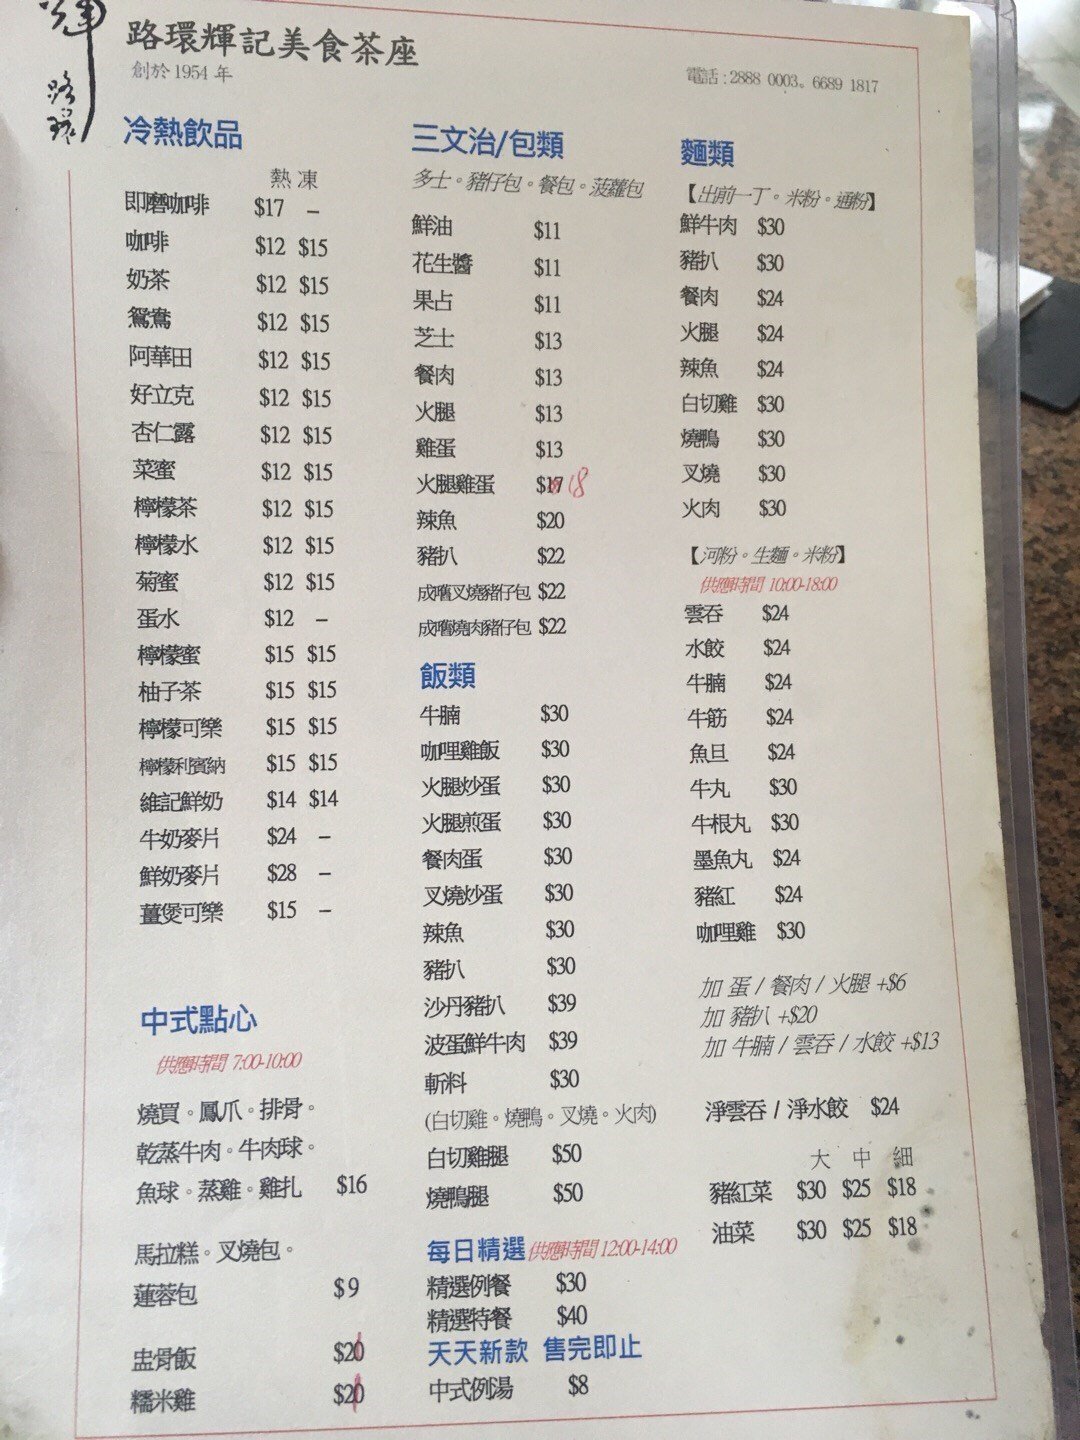 輝
路環
路環輝記美食茶座
創於 1954 年
電話 : 2888 0003。6689 1817
冷熱飲品
熱 凍
即磨咖啡 $17 –
咖啡 $12 $15
奶茶 $12 $15
鴛鴦 $12 $15
阿華田 $12 $15
好立克 $12 $15
杏仁露 $12 $15
菜蜜 $12 $15
檸檬茶 $12 $15
檸檬水 $12 $15
菊蜜 $12 $15
蛋水 $12 –
檸檬蜜 $15 $15
柚子茶 $15 $15
檸檬可樂 $15 $15
檸檬利賓納 $15 $15
維記鮮奶 $14 $14
牛奶麥片 $24 –
鮮奶麥片 $28 –
薑煲可樂 $15 –
中式點心
供應時間 7:00-10:00
燒買。鳳爪。排骨。
乾蒸牛肉。牛肉球。
魚球。蒸雞。雞扎 $16
馬拉糕。叉燒包。
蓮蓉包 $ 9
盅骨飯 $20
糯米雞 $20
三文治/包類
多士。豬仔包。餐包。菠蘿包
鮮油 $11
花生醬 $11
果占 $11
芝士 $13
餐肉 $13
火腿 $13
雞蛋 $13
火腿雞蛋 $17 18
辣魚 $20
豬扒 $22
成嚿叉燒豬仔包 $22
成嚿燒肉豬仔包 $22
飯類
牛腩 $30
咖哩雞飯 $30
火腿炒蛋 $30
火腿煎蛋 $30
餐肉蛋 $30
叉燒炒蛋 $30
辣魚 $30
豬扒 $30
沙丹豬扒 $39
波蛋鮮牛肉 $39
斬料 $30
(白切雞。燒鴨。叉燒。火肉)
白切雞腿 $50
燒鴨腿 $50
每日精選 供應時間 12:00-14:00
精選例餐 $30
精選特餐 $40
天天新款 售完即止
中式例湯 $8
麵類
【出前一丁。米粉。通粉】
鮮牛肉 $30
豬扒 $30
餐肉 $24
火腿 $24
辣魚 $24
白切雞 $30
燒鴨 $30
叉燒 $30
火肉 $30
【河粉。生麵。米粉】
供應時間 10:00-18:00
雲吞 $24
水餃 $24
牛腩 $24
牛筋 $24
魚旦 $24
牛丸 $30
牛根丸 $30
墨魚丸 $24
豬紅 $24
咖哩雞 $30
加 蛋 / 餐肉 / 火腿 +$6
加 豬扒 +$20
加 牛腩 / 雲吞 / 水餃 +$13
淨雲吞 / 淨水餃 $24
大 中 細
豬紅菜 $30 $25 $18
油菜 $30 $25 $18